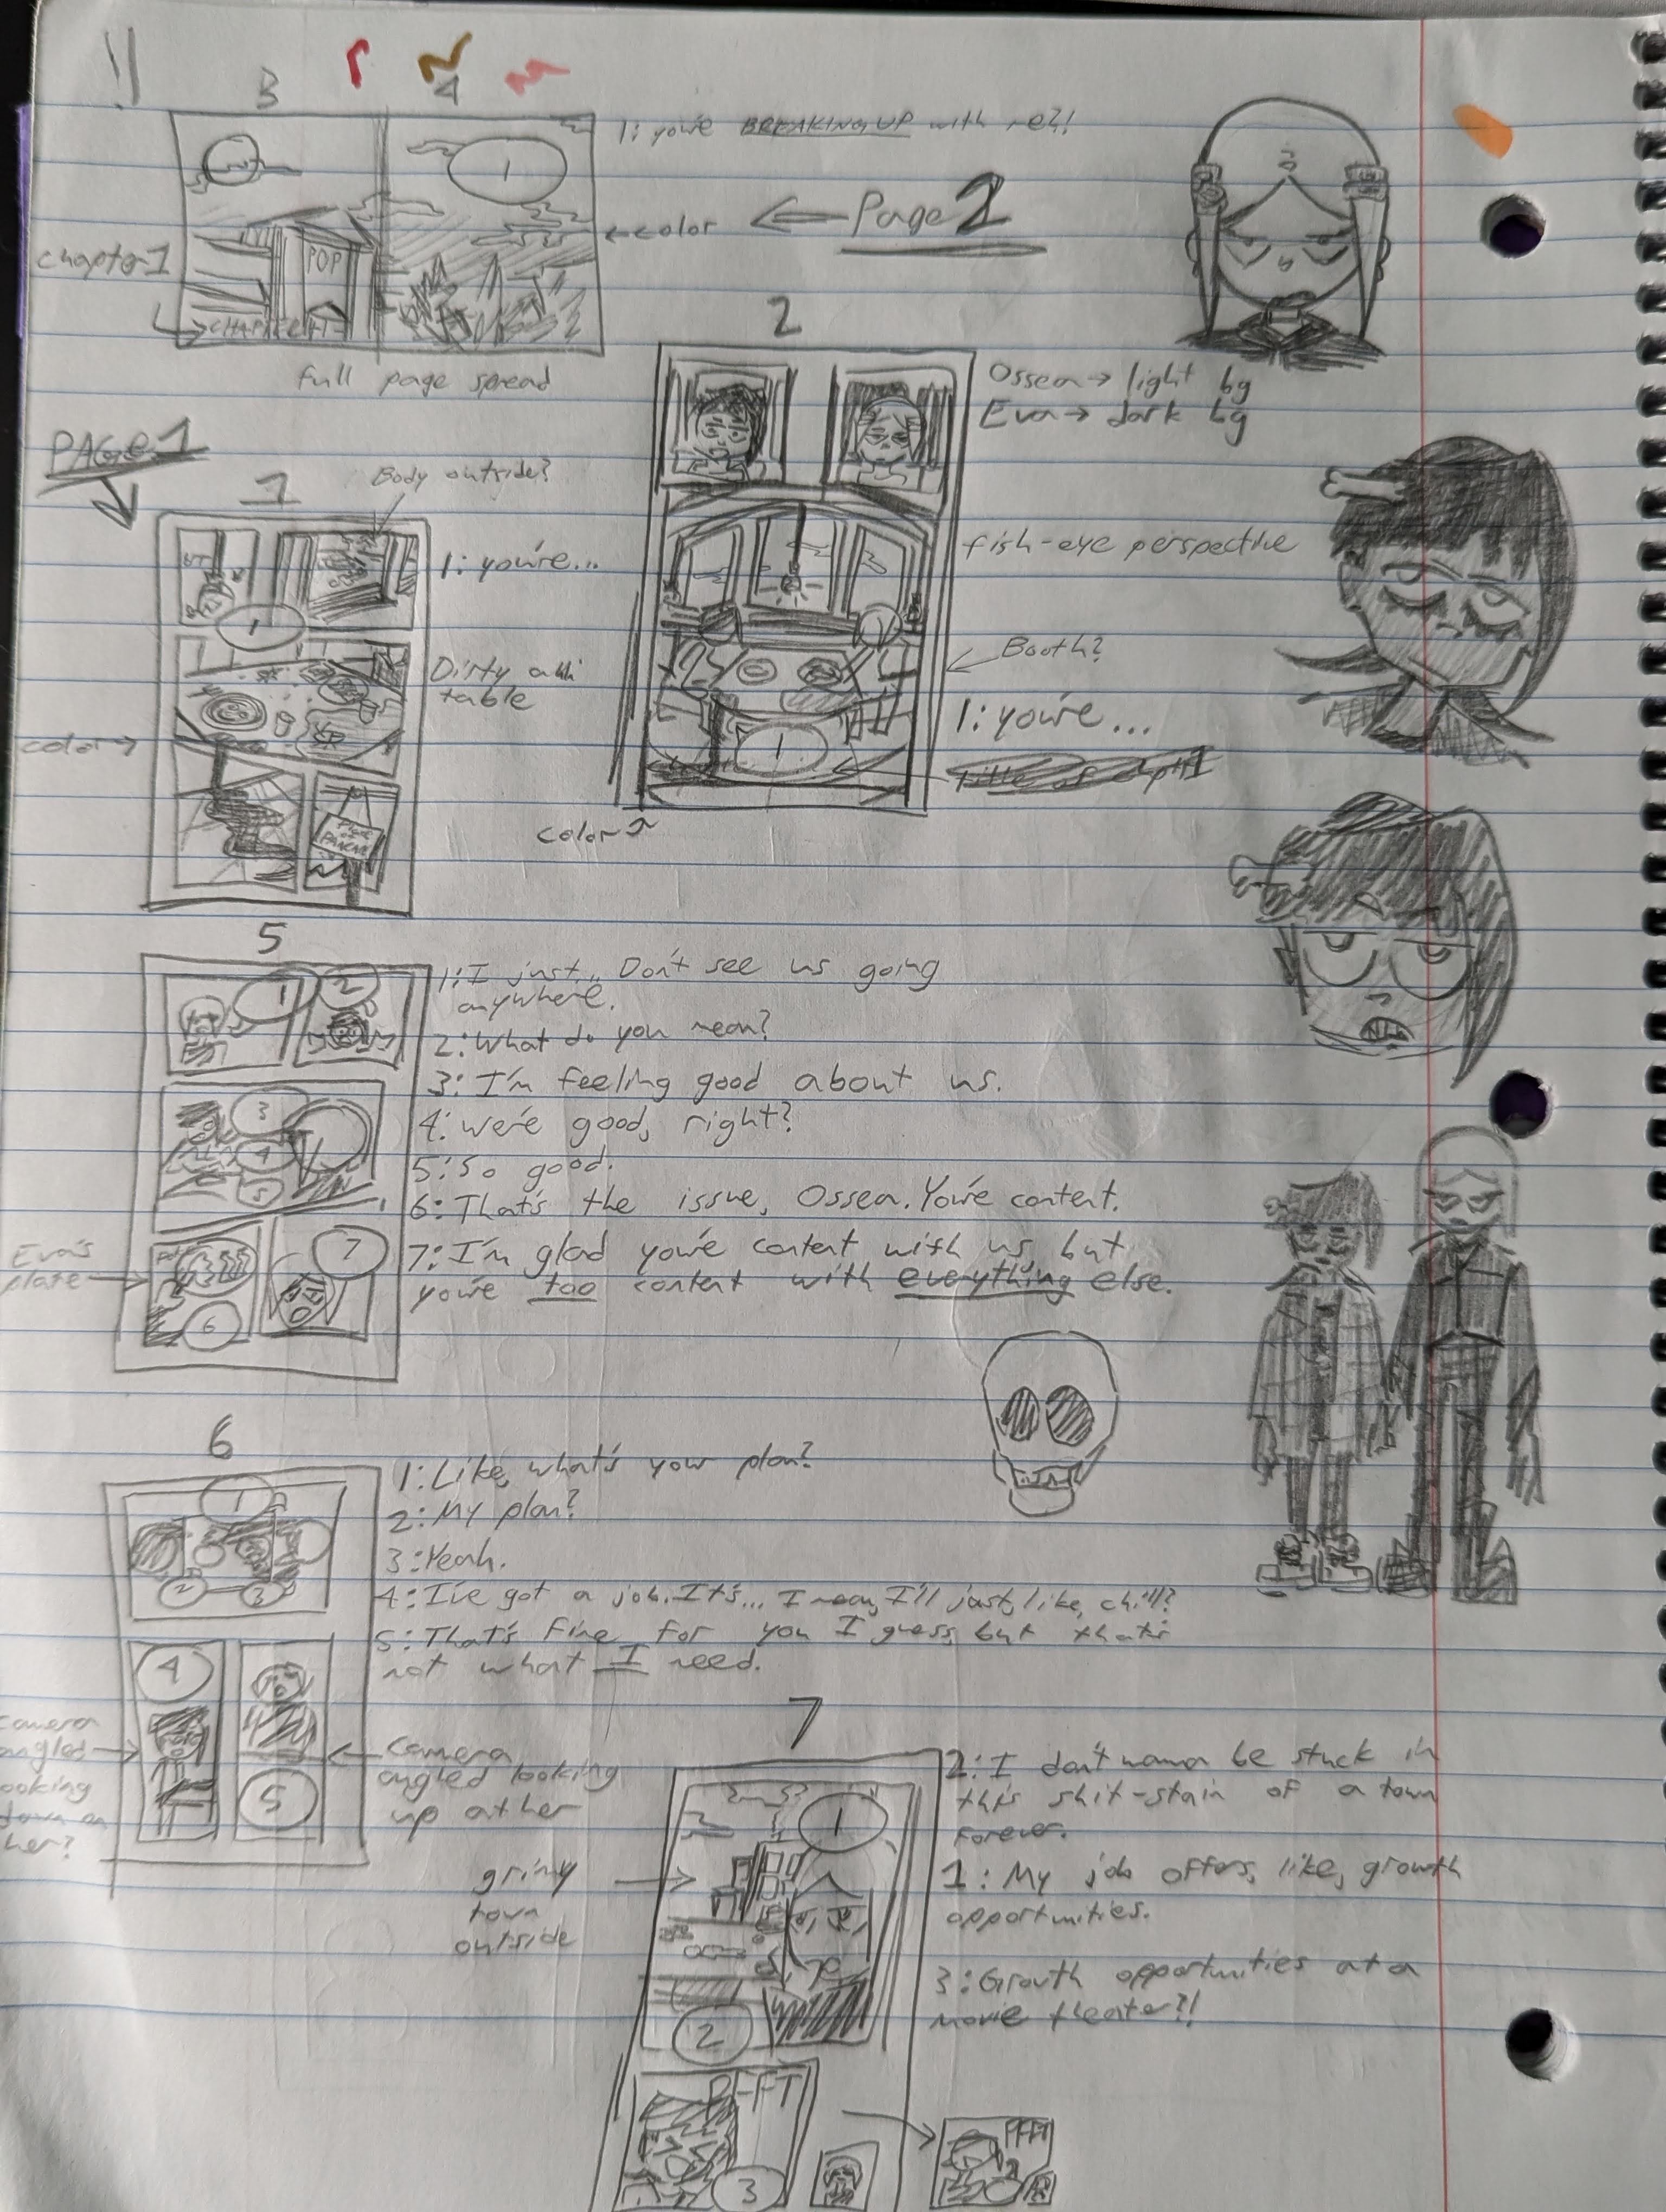 3 4
1: you're BREAKING UP with me?!
← Page 2
← color
chapter 1
POP
CHAPTER 1
full page spread
2
Ossea → light bg
Eva → dark bg
fish-eye perspective
Booth?
1: you're...
color
PAGE 1
1
Body outside?
1: you're...
Dirty ahh
table
color →
5
1: I just... Don't see us going
anywhere.
2: What do you mean?
3: I'm feeling good about us.
4: We're good, right?
5: So good.
6: That's the issue, Ossea. You're content.
7: I'm glad you're content with us, but
you're too content with everything else.
Eva's
plate
6
1: Like, what's your plan?
2: My plan?
3: Yeah.
4: I've got a job. It's... I mean, I'll just, like, chill?
5: That's fine for you I guess, but that's
not what I need.
camera
angled
looking
down on
her?
camera
angled looking
up at her
7
2: I don't wanna be stuck in
this shit-stain of a town
forever.
1: My job offers, like, growth
opportunities.
3: Growth opportunities at a
movie theater?!
grimy
town
outside
PFFT
3
PFFT